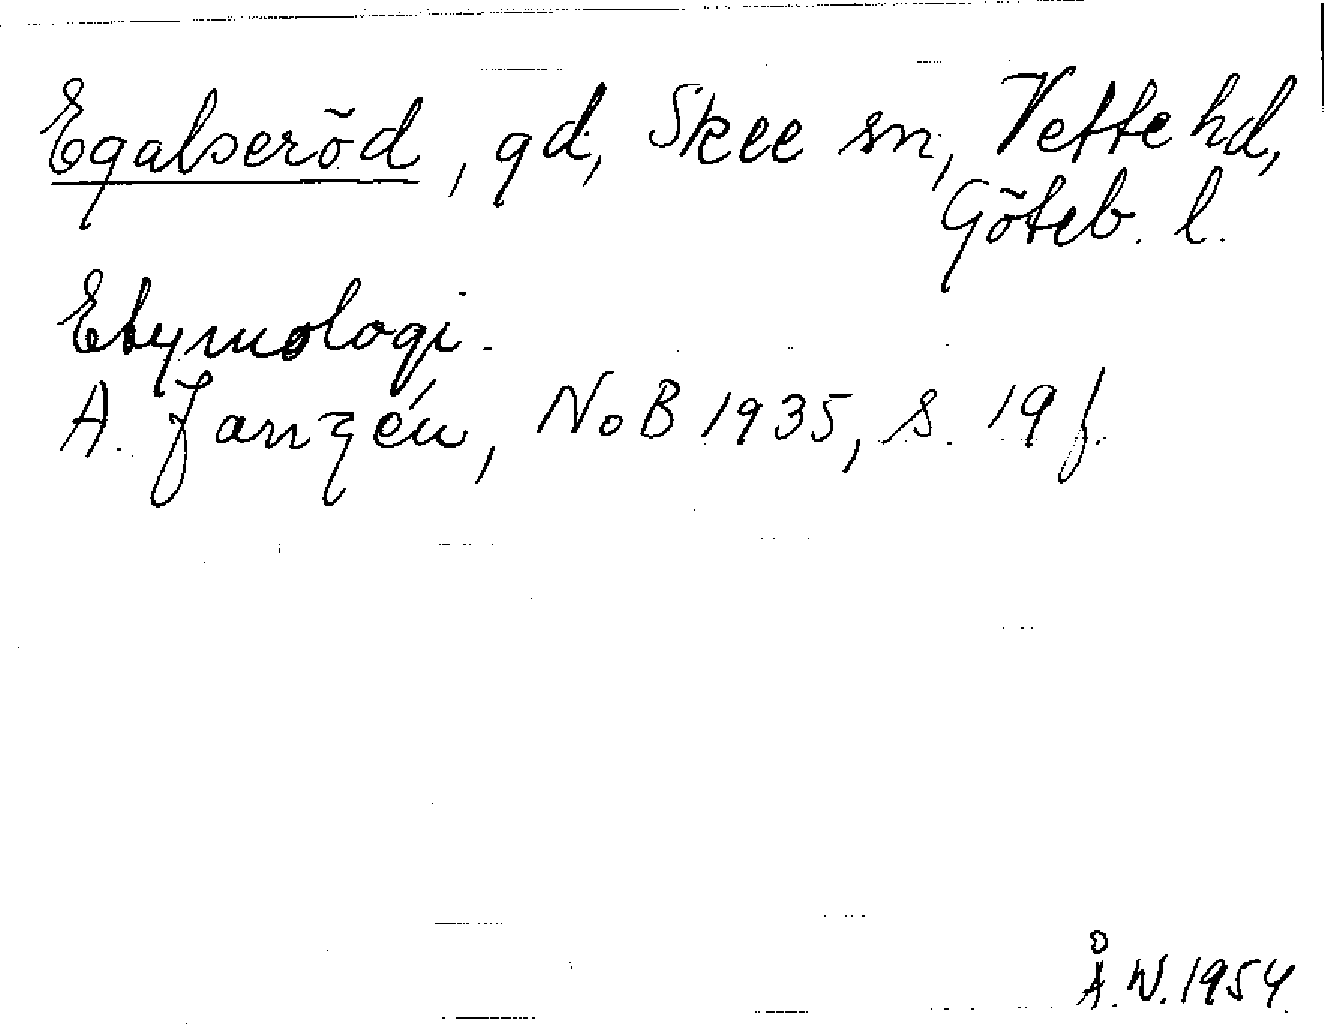 Egalseröd, gd, Skee sn, Vette hd,
Göteb. l.
Etymologi.
A. Janzén, NoB 1935, s. 19 f.
Å. N. 1954